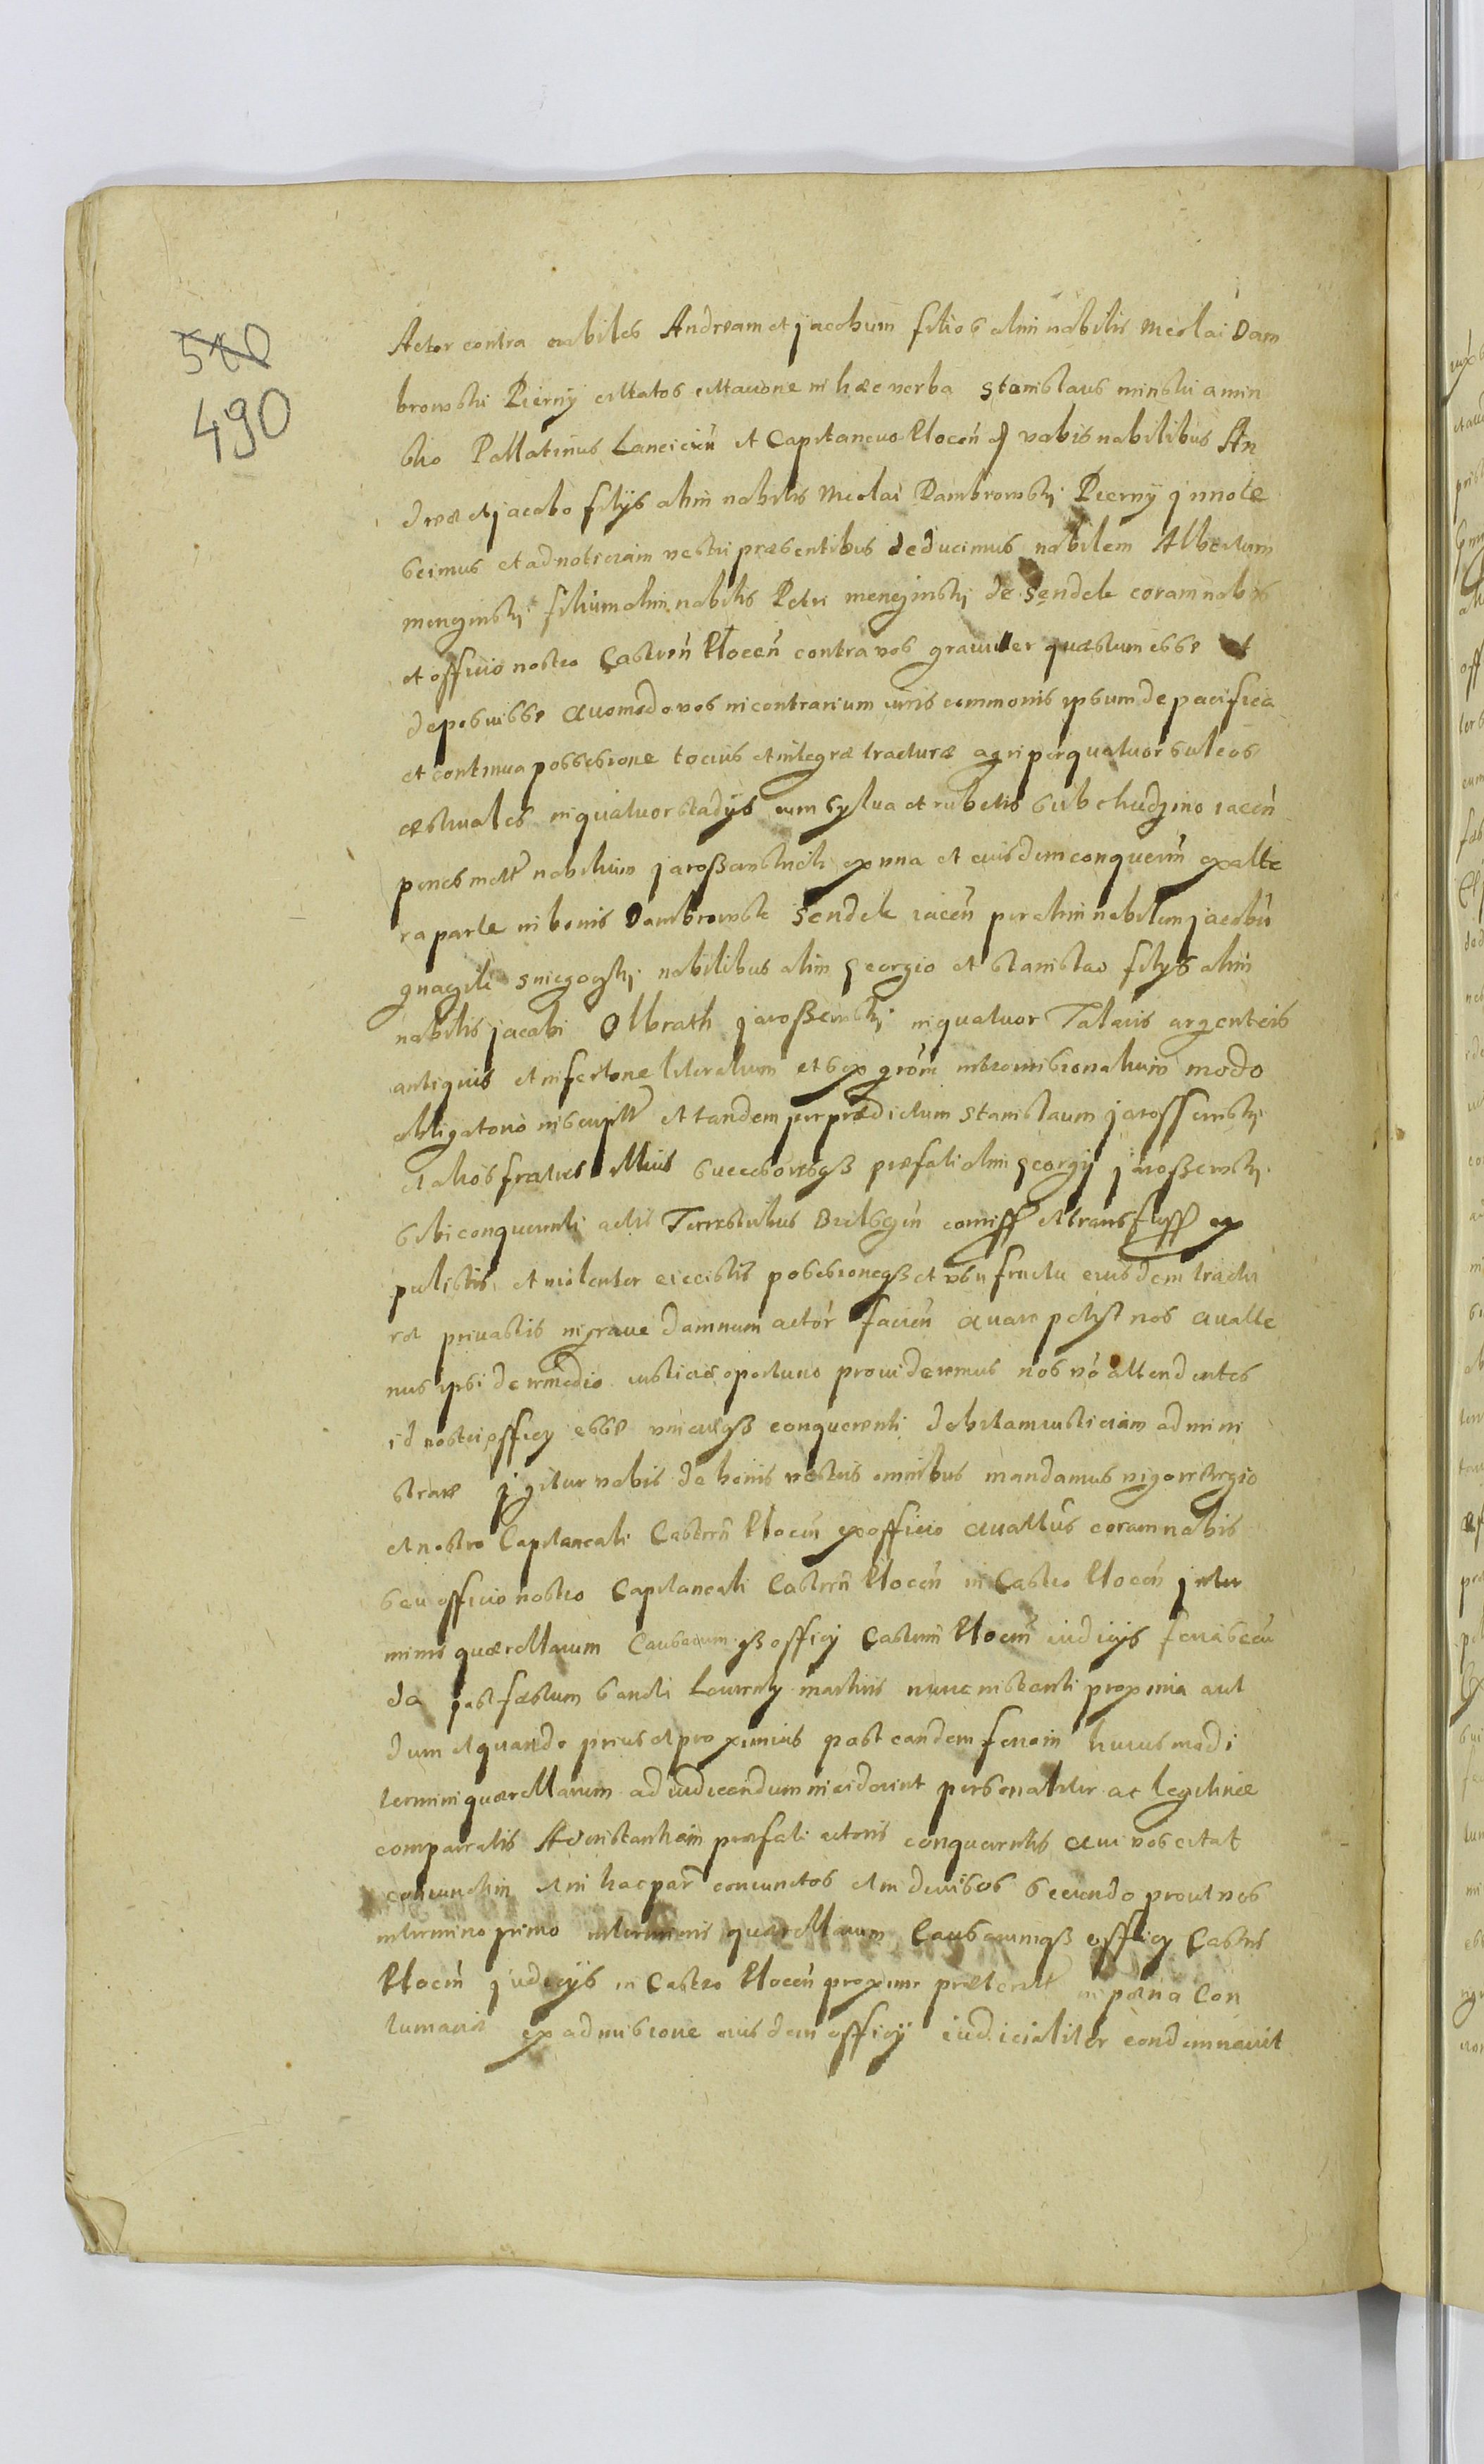 510
490
Actor contra nobiles Andream et jacobum filios olim nobilis Nicolai Dam
browski Pierny citatos citacione in hæc verba Stanislaus minski a min
sko Pallatinus Lancicien et Capitaneus Plocen vobis nobilibus An
dreæ et jacobo filijs olim nobilis Nicolai Dambrowskj Pierny jnnote
scimus et ad noticiam vestri præsentibus deducimus nobilem Albertum
filium olim nobilis Petri de Sendek coram nobis
et officio nostro Castren Plocen contra vos grauiter quæstum esse et
deposuisse Quomodo vos in contrarium iuris communis ipsum de pacifica
et continua possessione tocius et integræ tracturæ agri per quatuor sulcos
æstiuales in quatuor stadijs cum sylua et rubetis sub chudzino iacen
penes nobilium ex vna et eiusdem conqueren ex alte
ra parte in bonis Dambrowsk Sendek iacen per olim nobilem jacobu
nobilibus olim georgio et stanislao filijs olim
nobilis jacobi Olbrath jaroßewskj in quatuor Talaris argenteis
antiquis et in fertone literatum et sex intromissionatum modo
obligatorio inscript et tandem per prædictum Stanislaum jarossewskj
et alios fratres illius successoresqß præfati olim georgij jaroßewskj
sibi conquerenti actis Terrestribus comiss et ex
pulistis et violenter eiecistis possessioneqß et vsufructu eiusdem tractu
ræ priuastis in graue damnum actor facien Quare petijt nos Quatte
nus ipsi de remedio iusticiæ oportuno prouideremus nos vo attendentes
id nostri officij esse vnicuiqß conquerenti debitam iusticiam admini
strare jgitur vobis de bonis vestris omnibus mandamus vigore regio
et nostro Capitaneali Castren Plocen ex officio Quattus coram nobis
seu officio nostro Capitaneali Castren Plocen in Castro Plocen jn ter
minis quærellarum Causarumqß officij Castren Plocen iudicijs feria secun
da post fæstum Sancti Laurentij martiris nunc instanti proxima aut
dum et quando prius et proximius post eandem feriam huiusmodi
termini quærellarum ad iudicandum inciderint personaliter ac legitime
compareatis Ad instantiam præfati actoris conquerentis Qui vos citat
coniunctim et in hac par coniunctos et indiuisos secundo prout vos
in termino primo in terminis quærellarum Causarumqß officij Castren
Plocen judicijs in Castro Plocen proxime præterit in pæna Con
tumaciæ ex admissione eiusdem officij iudicialiter condemnauit